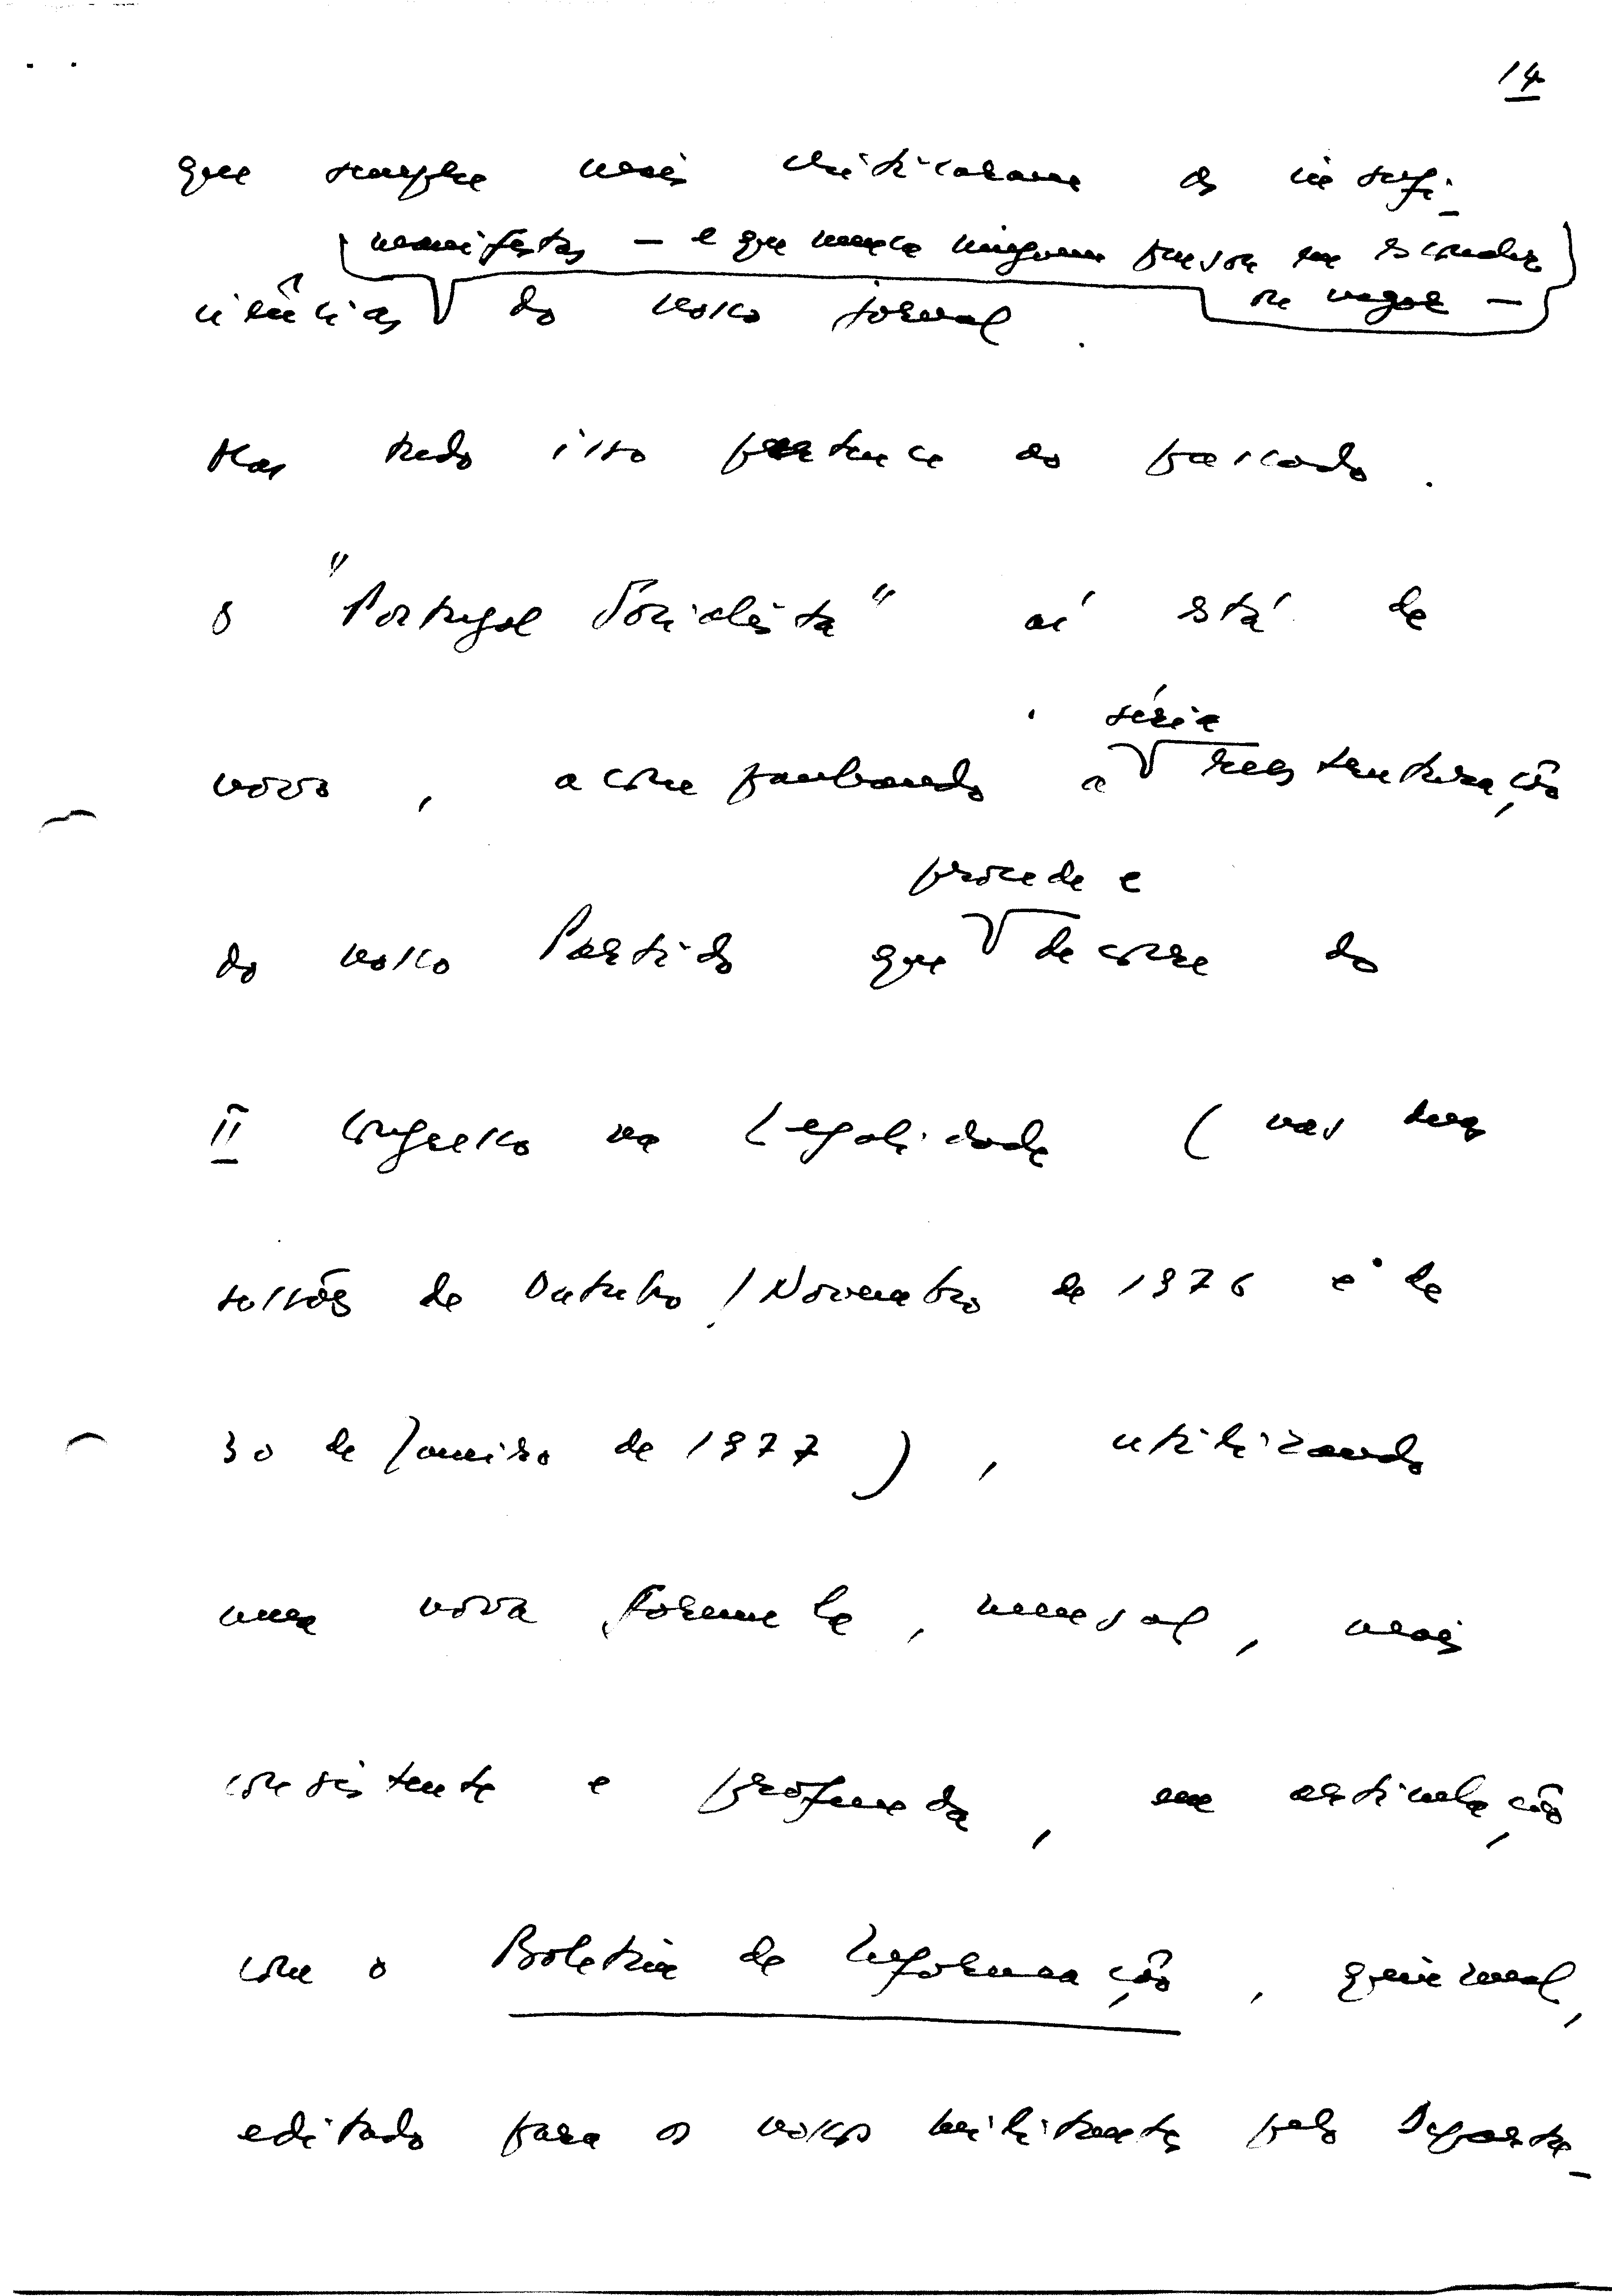 14
que sempre mais criticaram as insufi-
manifestas — e que nunca ninguém pensou em esconder
ou negar —
ciências do nosso jornal.
Mas tudo isso pertence ao passado.
O "Portugal Socialista" aí está de
novo, acompanhando a séria reestruturação
do nosso Partido que procede e decorre do
II Congresso na Legalidade (nas suas
sessões de Outubro/Novembro de 1976 e de
30 de Janeiro de 1977), utilizando
uma nova fórmula, mensal, mais
consistente e profunda, em articulação
com o Boletim de Informação, quinzenal,
editado para os nossos militantes pelo Departa-